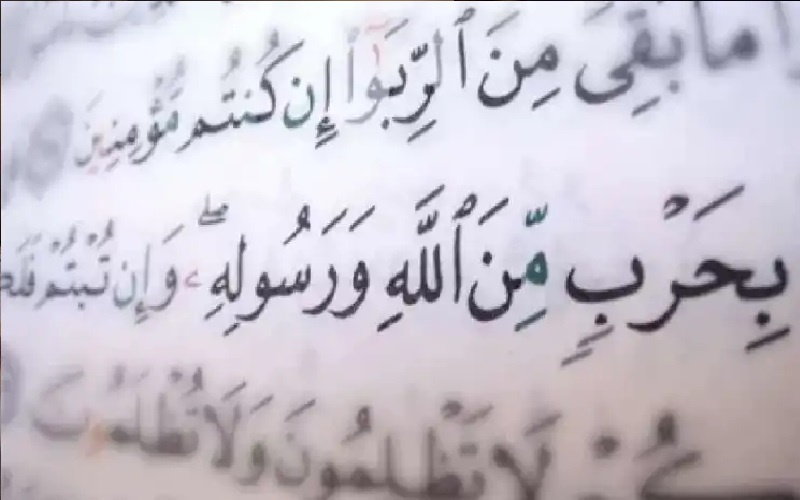 ما بَقِىَ مِنَ ٱلرِّبَوٰٓا۟ إِن كُنتُم مُّؤْمِنِينَ
بِحَرْبٍ مِّنَ ٱللَّهِ وَرَسُولِهِۦ ۖ وَإِن تُبْتُمْ
لَا تَظْلِمُونَ وَلَا تُظْلَمُونَ